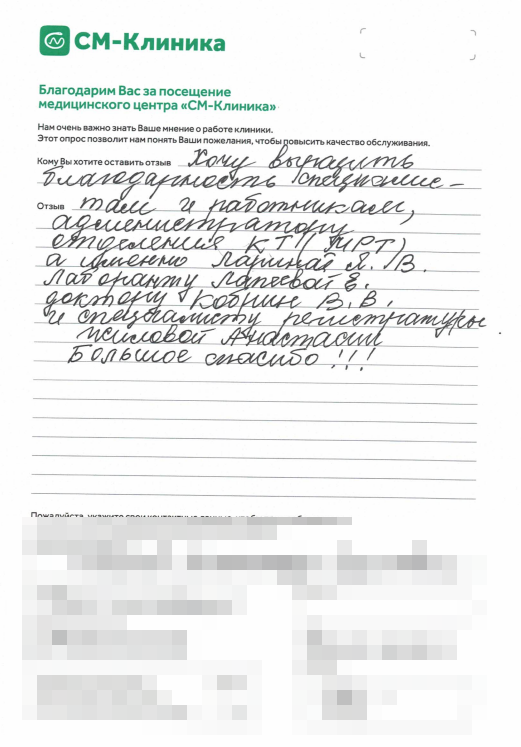 СМ-Клиника
Благодарим Вас за посещение
медицинского центра «СМ-Клиника»
Нам очень важно знать Ваше мнение о работе клиники.
Этот опрос позволит нам понять Ваши пожелания, чтобы повысить качество обслуживания.
Кому Вы хотите оставить отзыв Хочу выразить
благодарность специалис-
Отзыв там и работникам,
администратору
отделения КТ (МРТ)
а именно Лариной Я. В.
Лаборанту Лаптевой Е.
доктору Кобрин В.В.
и специалисту регистратуры
Жиловой Анастасии
Большое спасибо !!!
Пожалуйста, укажите свои контактные данные,